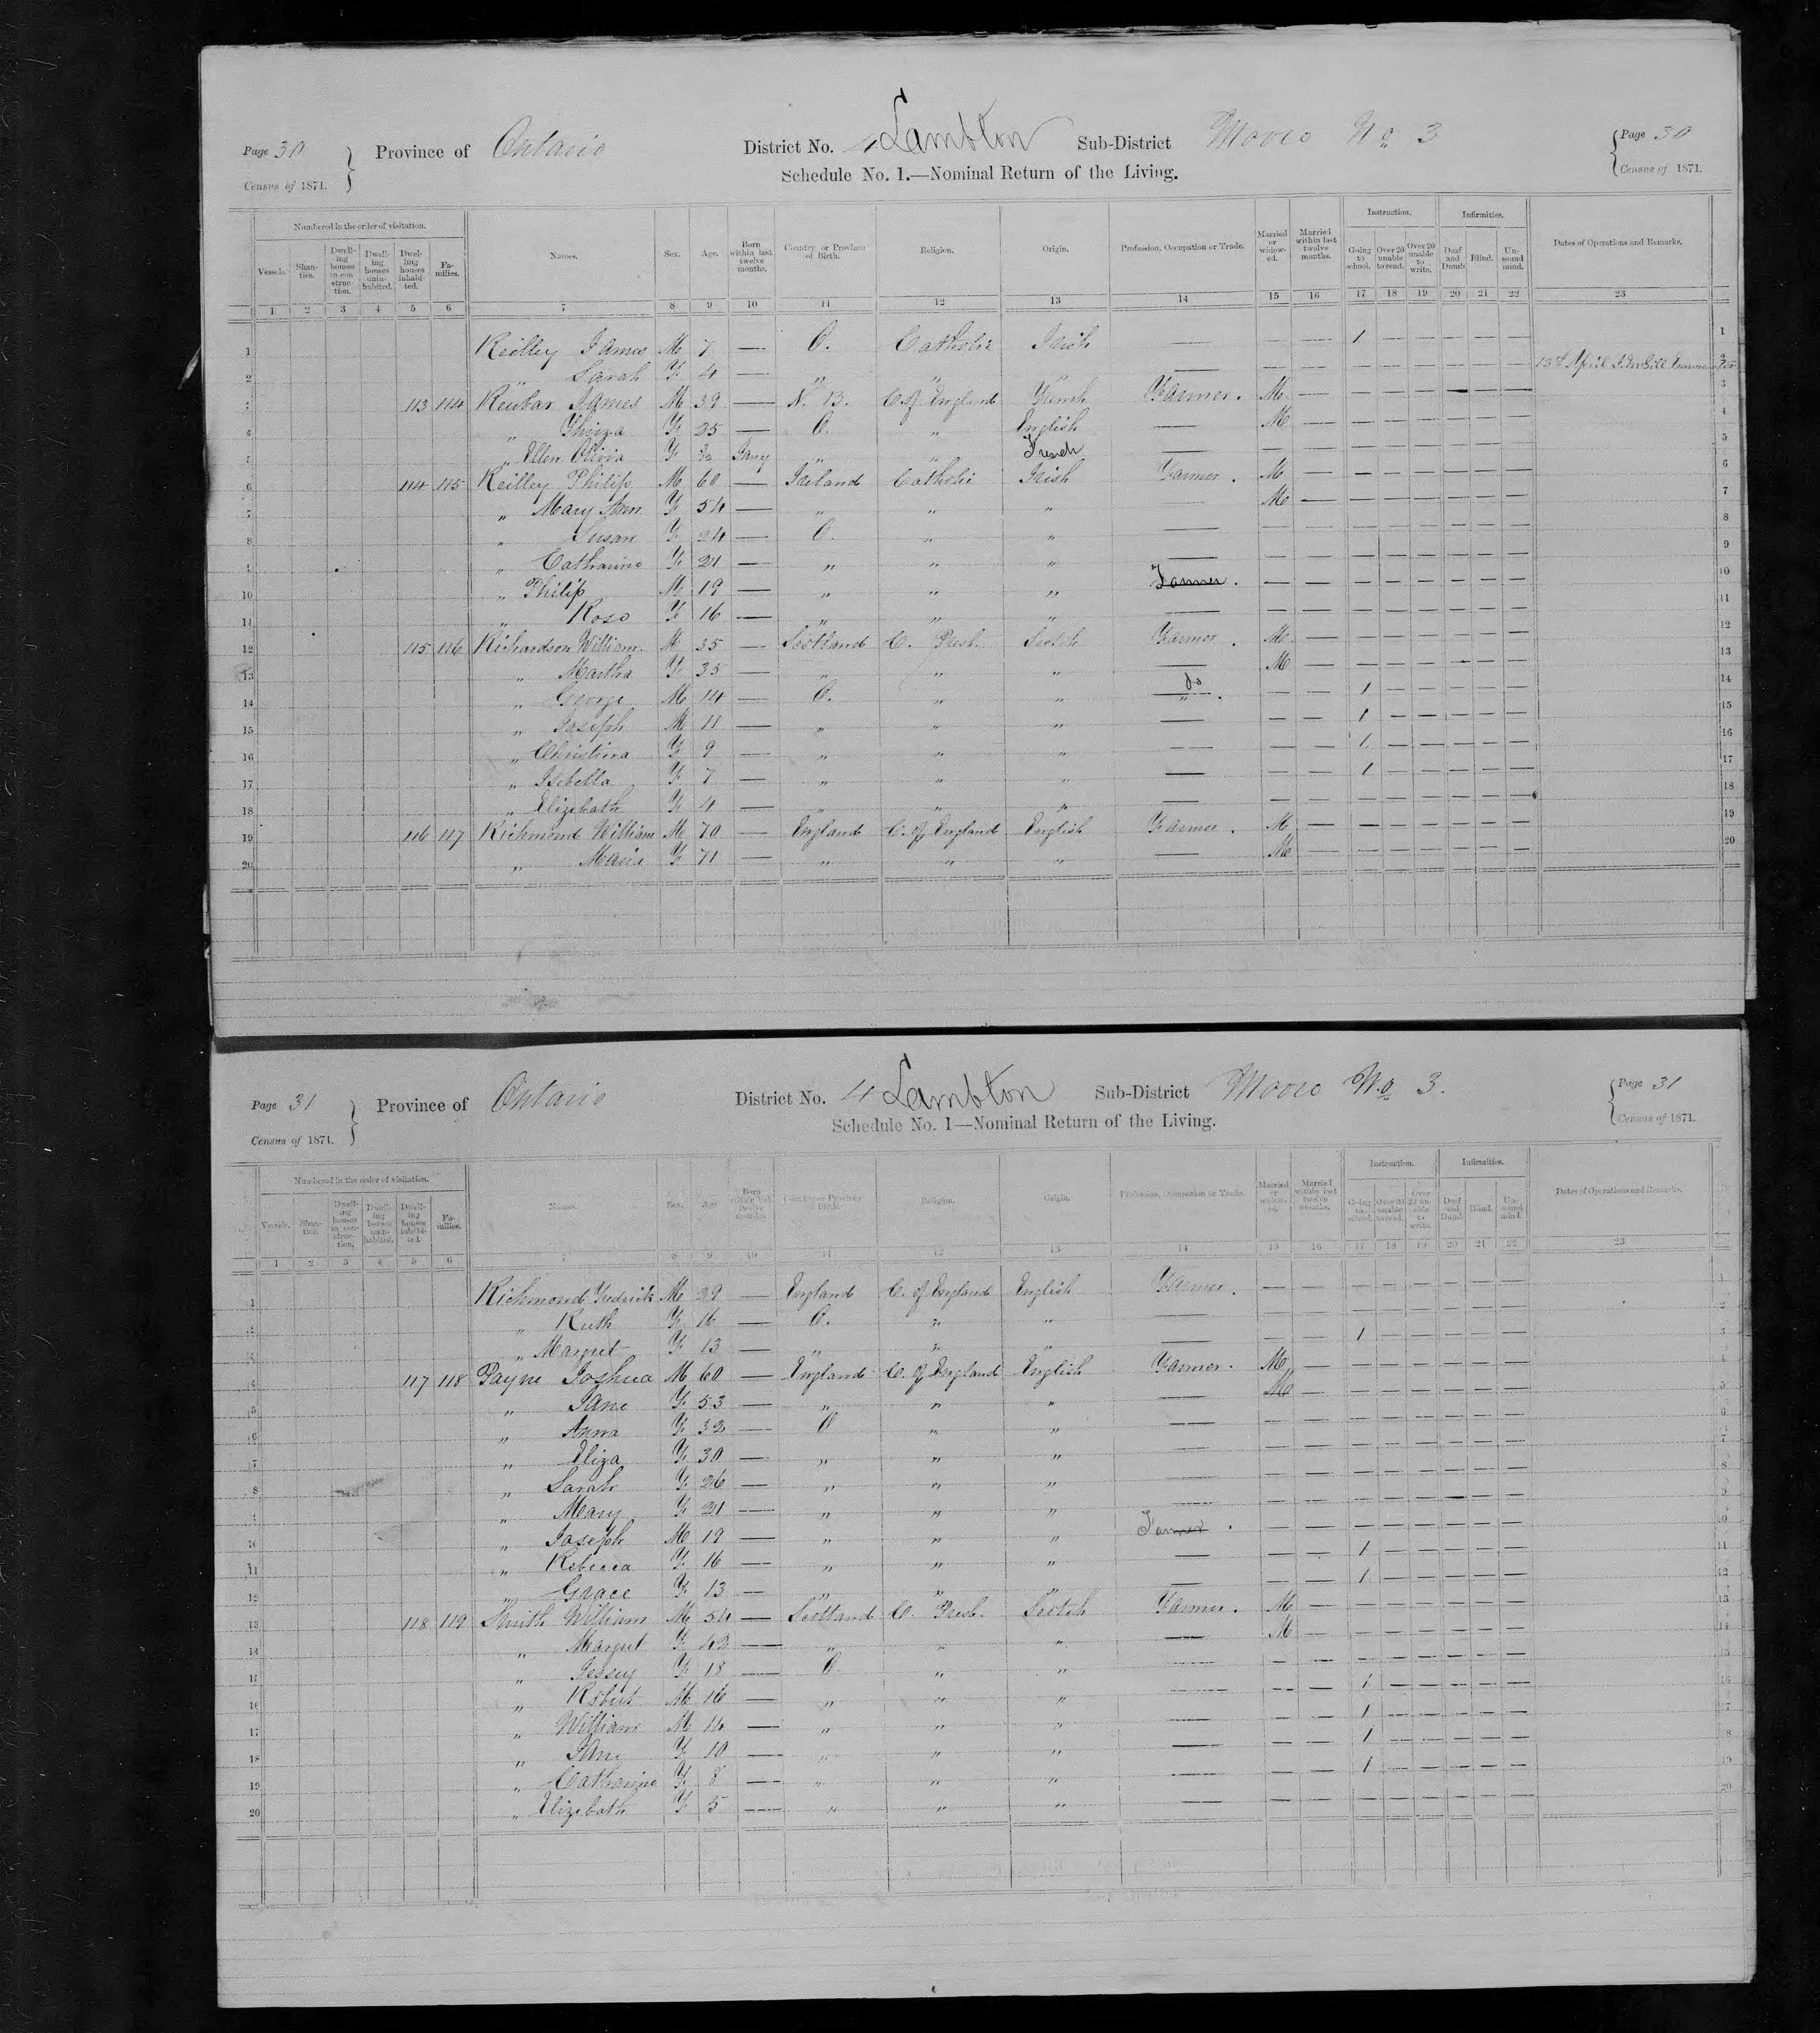 Page 30 Province of Ontario District No. 4 Lambton Sub-District Moore No 3 Page 30
Census of 1871. Schedule No. 1.—Nominal Return of the Living. Census of 1871.
Numbered in the order of visitation. Instruction. Infirmities.
Vessels. Shanties. Dwelling houses in construction. Dwelling houses uninhabited. Dwelling houses inhabited. Families. Names. Sex. Age. Born within last twelve months. Country or Province of Birth. Religion. Origin. Profession, Occupation or Trade. Married or widowed. Married within last twelve months. Going to school. Over 20 unable to read. Over 20 unable to write. Deaf and Dumb Blind. Unsound mind. Dates of Operations and Remarks.
1 2 3 4 5 6 7 8 9 10 11 12 13 14 15 16 17 18 19 20 21 22 23
1 Reilley James M 7 — O. Catholic Irish — — — 1 — — — — — 1
2 " Sarah F 4 — " " " — — — — — — — — — 13th April Enumerator 2
3 113 114 Reubar James M 39 — N. B. C. of England French Farmer. M — — — — — — — 3
4 " Thirza F 25 — O. " English — M — — — — — — — 4
5 " Ellen Olivia F Jany " " French — — — — — — — — — 5
6 114 115 Reilley Philip M 60 — Ireland Catholic Irish Farmer. M — — — — — — — 6
7 " Mary Ann F 54 — " " " — M — — — — — — — 7
8 " Susan F 24 — O. " " — — — — — — — — — 8
9 " Catharine F 21 — " " " — — — — — — — — — 9
10 " Philip M 19 — " " " Farmer. — — — — — — — — 10
11 " Rose F 16 — " " " — — — — — — — — — 11
12 115 116 Richardson William M 35 — Scotland C. Presb. Scotch Farmer. M — — — — — — — 12
13 " Martha F 35 — " " " — M — — — — — — — 13
14 " George M 14 — O. " " do — — 1 — — — — — 14
15 " Joseph M 11 — " " " — — — 1 — — — — — 15
16 " Christina F 9 — " " " — — — 1 — — — — — 16
17 " Isebella F 7 — " " " — — — 1 — — — — — 17
18 " Elizebath F 4 — " " " — — — — — — — — — 18
19 116 117 Richmond William M 70 — England C. of England English Farmer. M — — — — — — — 19
20 " Marie F 71 — " " " — M — — — — — — — 20
Page 31 Province of Ontario District No. 4 Lambton Sub-District Moore No 3. Page 31
Census of 1871. Schedule No. 1—Nominal Return of the Living. Census of 1871.
Numbered in the order of visitation. Instruction. Infirmities.
Vessels. Shanties. Dwelling houses in construction. Dwelling houses uninhabited. Dwelling houses inhabited. Families. Names. Sex. Age Born within last twelve months. Country or Province of Birth. Religion. Origin. Profession, Occupation or Trade. Married or widowed. Married within last twelve months. Going to school. Over 20 unable to read. Over 20 unable to write. Deaf and Dumb Blind. Unsound mind. Dates of Operations and Remarks.
1 2 3 4 5 6 7 8 9 10 11 12 13 14 15 16 17 18 19 20 21 22 23
1 Richmond Frederick M 29 — England C. of England English Farmer. — — — — — — — — 1
2 " Ruth F 16 — O. " " — — — — — — — — — 2
3 " Margret F 13 — " " " — — — 1 — — — — — 3
4 117 118 Payne Joshua M 60 — England C. of England English Farmer. M — — — — — — — 4
5 " Jane F 53 — " " " — M — — — — — — — 5
6 " Anna F 32 — O " " — — — — — — — — — 6
7 " Eliza F 30 — " " " — — — — — — — — — 7
8 " Sarah F 26 — " " " — — — — — — — — — 8
9 " Mary F 21 — " " " — — — — — — — — — 9
10 " Joseph M 19 — " " " Farmer. — — — — — — — — 10
11 " Rebecca F 16 — " " " — — — 1 — — — — — 11
12 " Grace F 13 — " " " — — — 1 — — — — — 12
13 118 119 Smith William M 54 — Scotland C. Presb. Scotch Farmer. M — — — — — — — 13
14 " Margret F 43 — " " " — M — — — — — — — 14
15 " Jessey F 18 — O. " " — — — — — — — — — 15
16 " Robert M 16 — " " " — — — 1 — — — — — 16
17 " William M 14 — " " " — — — 1 — — — — — 17
18 " Jane F 10 — " " " — — — 1 — — — — — 18
19 " Catharine F 8 — " " " — — — 1 — — — — — 19
20 " Elizebath F 5 — " " " — — — — — — — — — 20